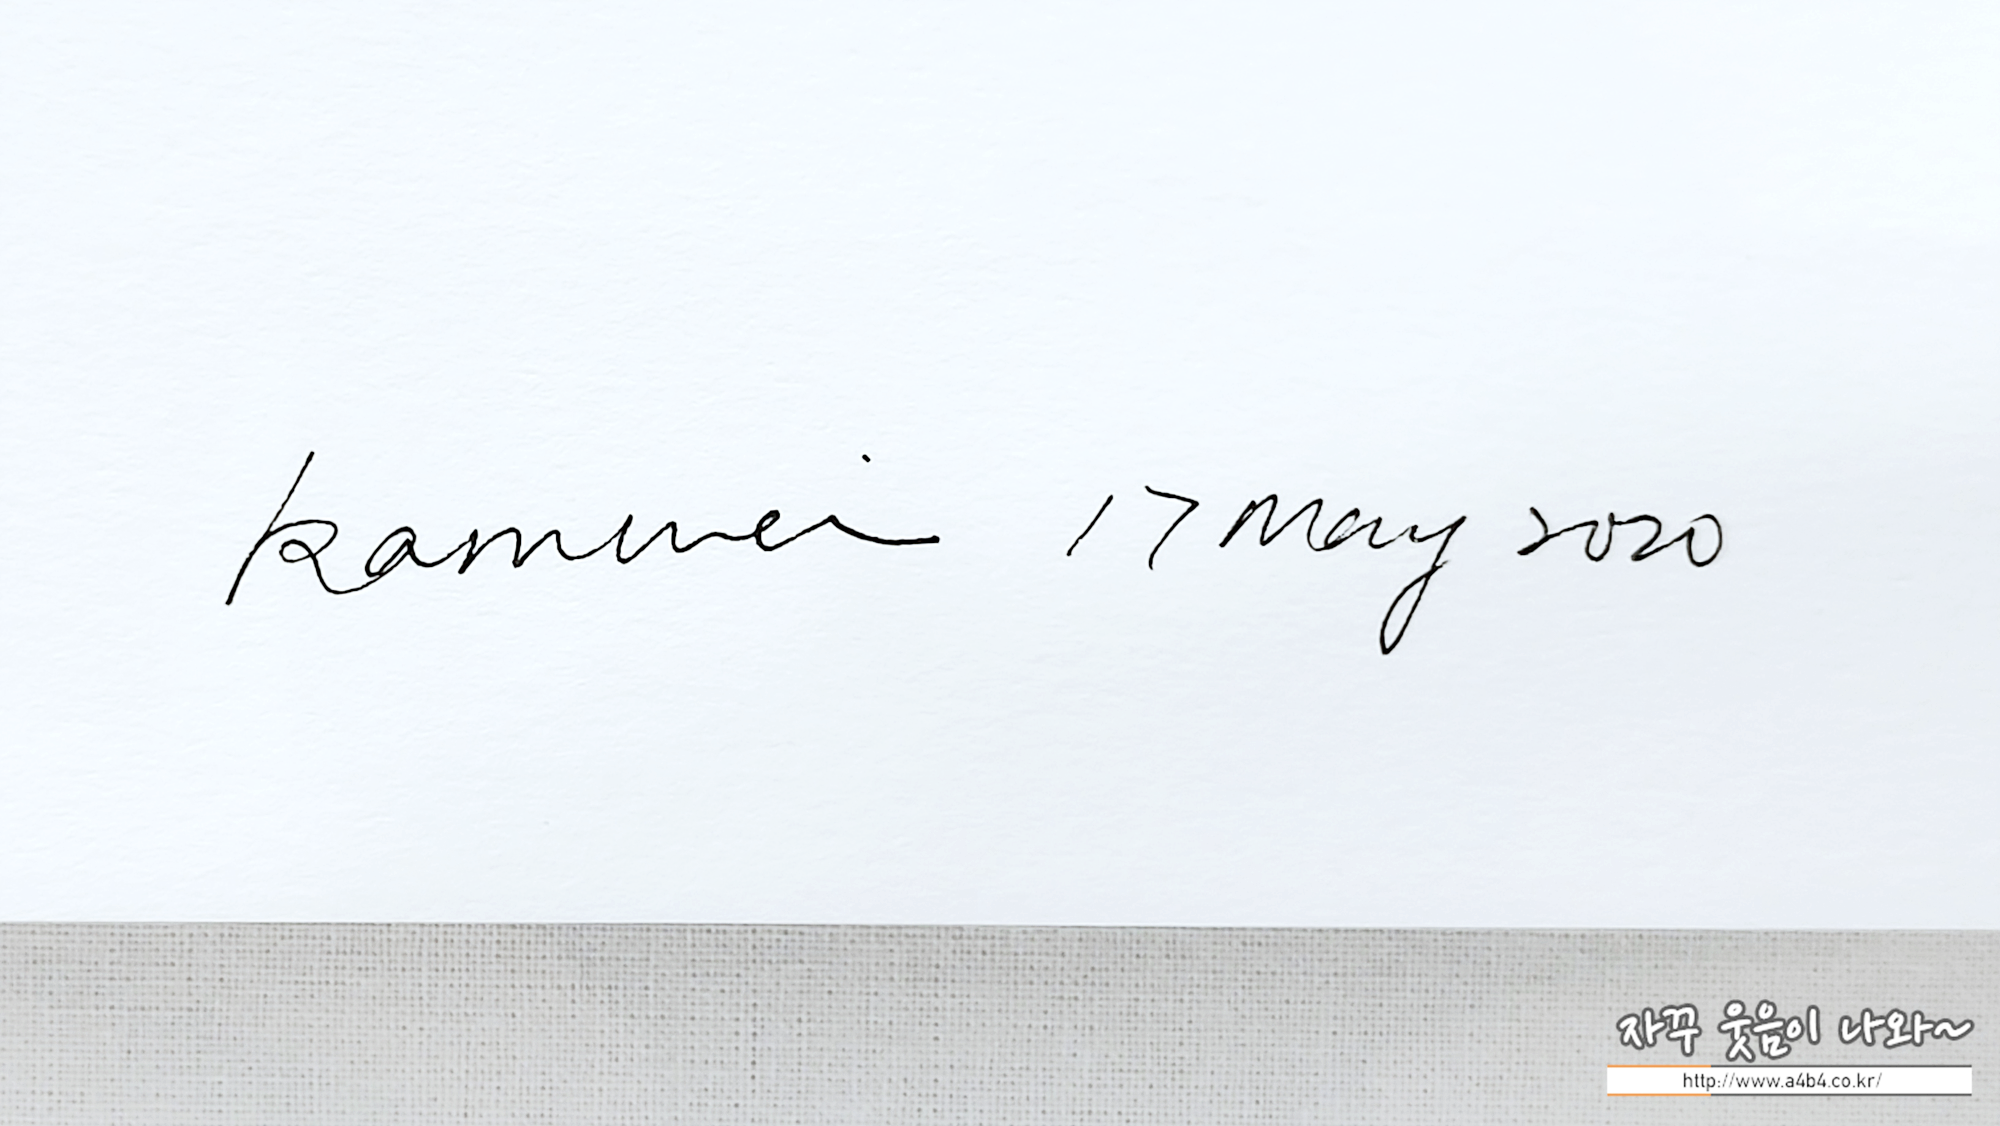 kamwei 17 May 2020
자꾸 웃음이 나와~
http://www.a4b4.co.kr/